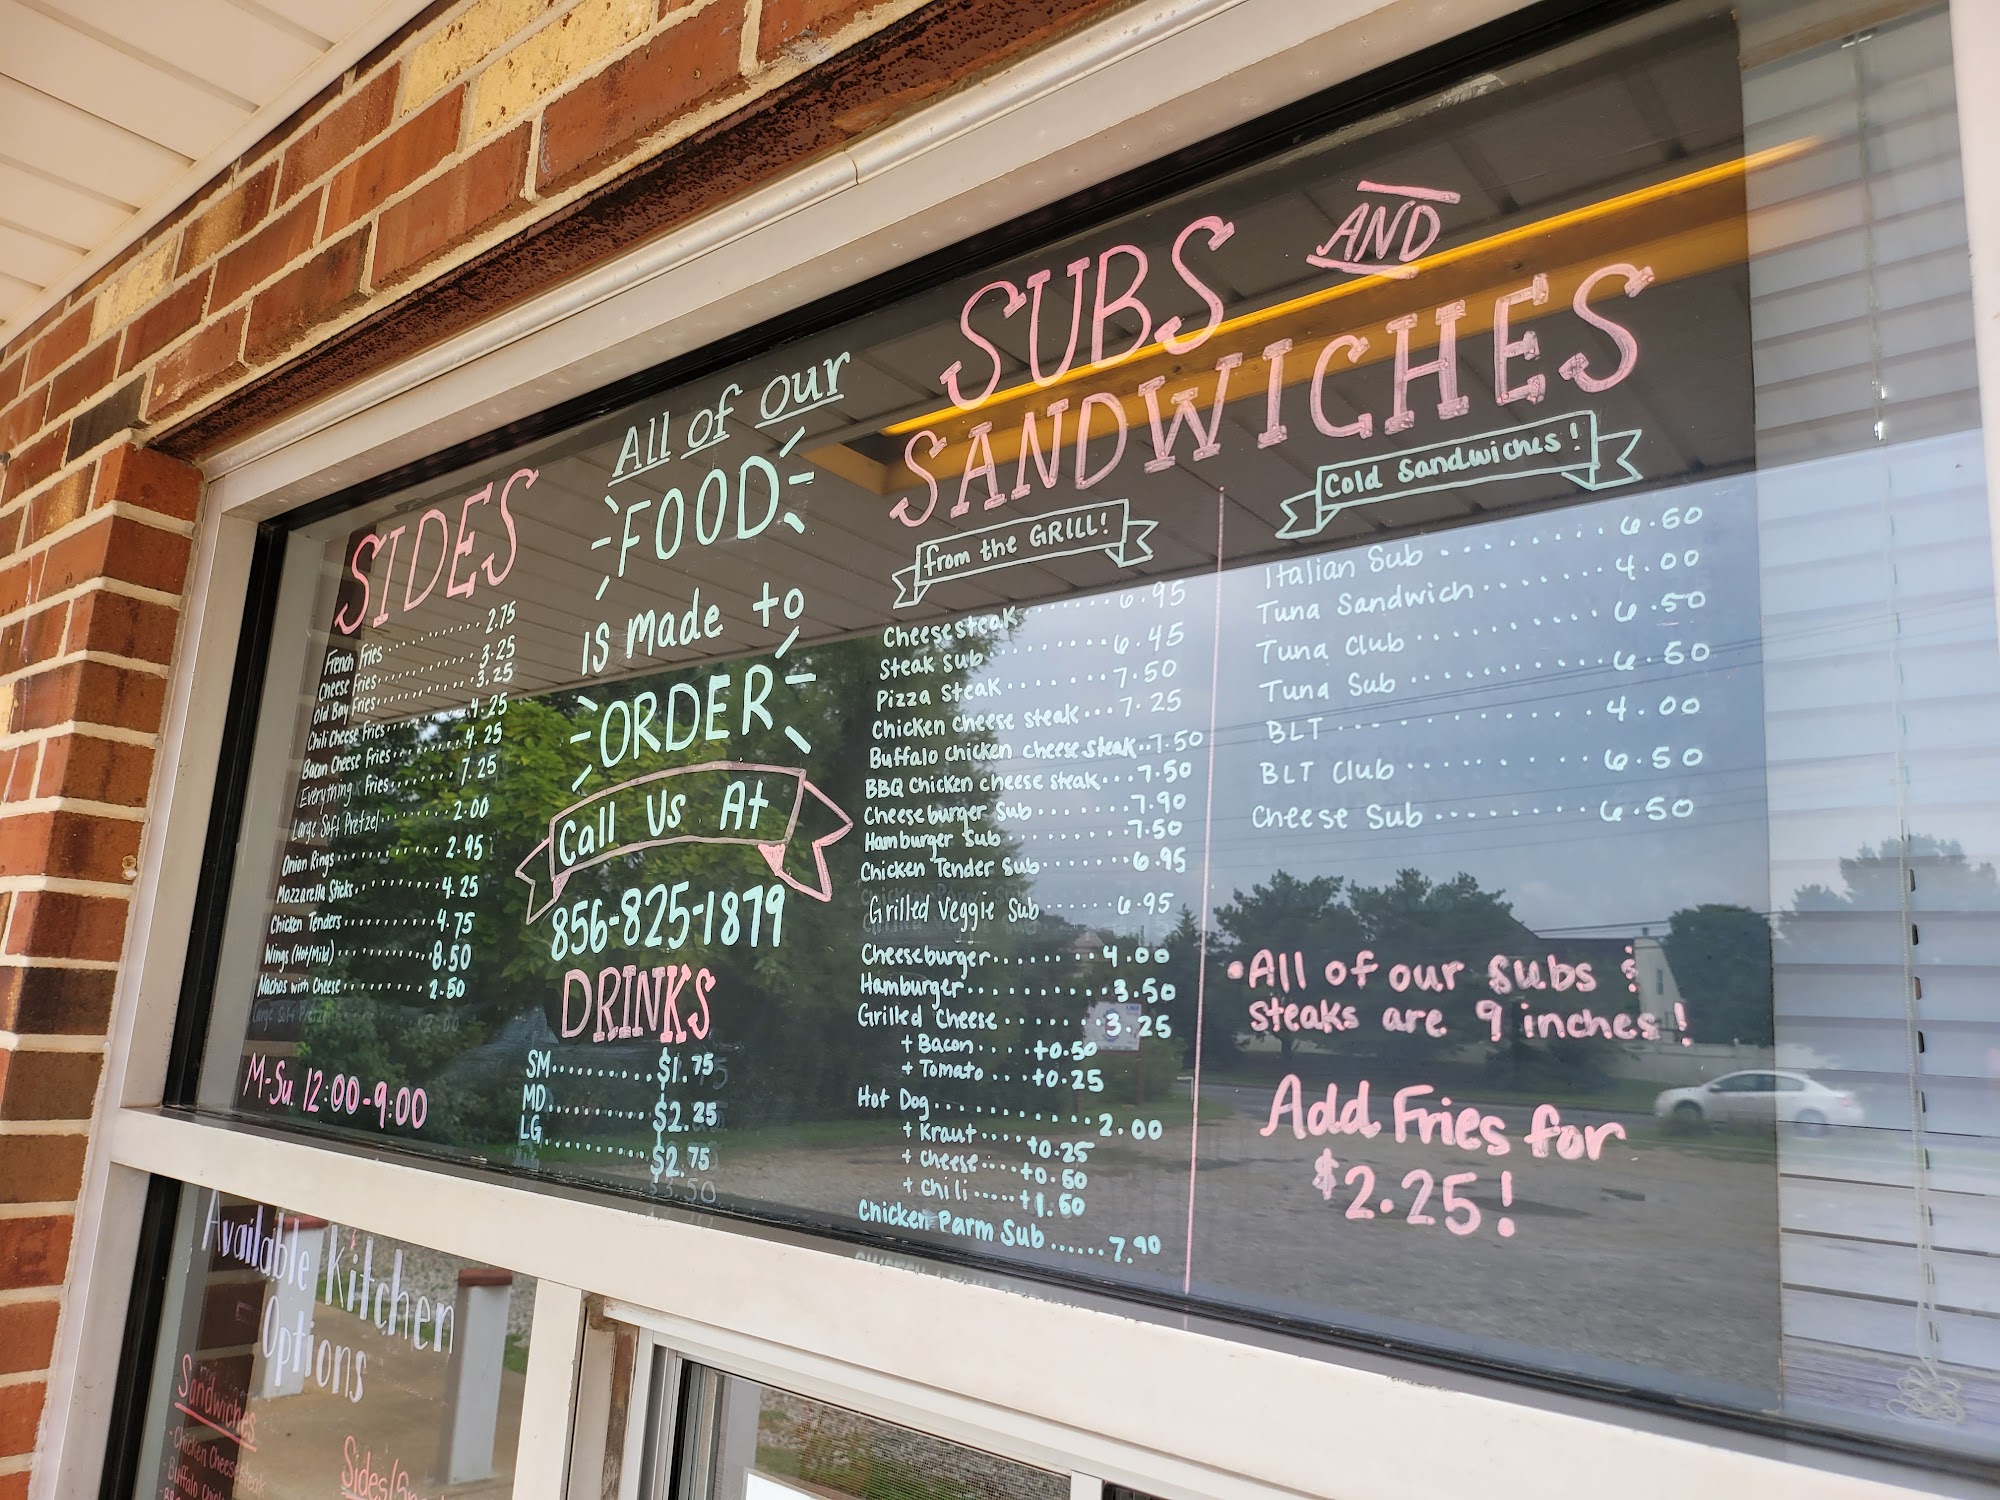 SIDES
French Fries 2.75
Cheese Fries 3.25
Old Bay Fries 3.25
Chili Cheese Fries 4.25
Bacon Cheese Fries 4.25
Everything Fries 7.25
Large Soft Pretzel 2.00
Onion Rings 2.95
Mozzarella Sticks 4.25
Chicken Tenders 4.75
Wings (Hot/Mild) 8.50
Nachos with Cheese 2.50
M-Su. 12:00-9:00
All of our
FOOD
is made to
ORDER
Call Us At
856-825-1879
DRINKS
SM $1.75
MD $2.25
LG $2.75
SUBS AND
SANDWICHES
from the GRILL!
Cheesesteak 6.95
Steak Sub 6.45
Pizza Steak 7.50
Chicken cheese steak 7.25
Buffalo chicken cheese steak 7.50
BBQ Chicken cheese steak 7.50
Cheeseburger Sub 7.90
Hamburger Sub 7.50
Chicken Tender Sub 6.95
Grilled Veggie Sub 6.95
Cheeseburger 4.00
Hamburger 3.50
Grilled Cheese 3.25
+ Bacon +0.50
+ Tomato +0.25
Hot Dog 2.00
+ Kraut +0.25
+ Cheese +0.50
+ Chili +1.50
Chicken Parm Sub 7.90
Cold Sandwiches!
Italian Sub 6.50
Tuna Sandwich 4.00
Tuna Club 6.50
Tuna Sub 6.50
BLT 4.00
BLT Club 6.50
Cheese Sub 6.50
• All of our subs &
steaks are 9 inches!
Add Fries for
$2.25!
Available Kitchen
Options
Sandwiches
- Chicken Cheesesteak
- Buffalo